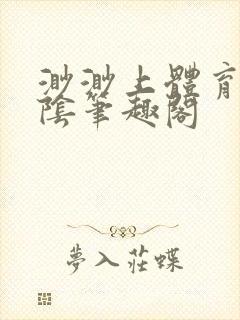 渺渺上體育
陰筆趣閣
夢入莊蝶